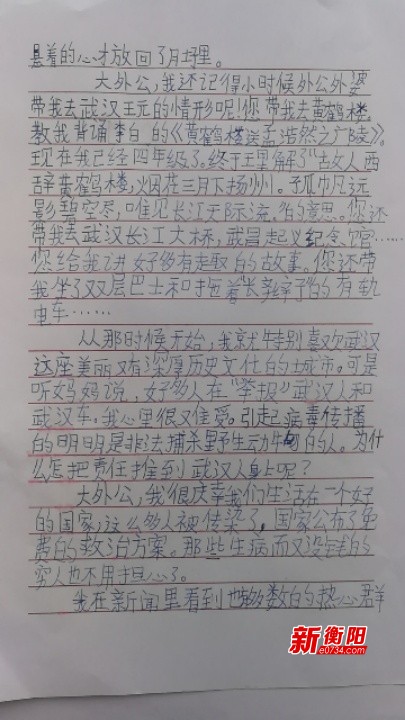 悬着的心才放回了肚子里。
大外公,我还记得小时候外公外婆
带我去武汉玩的情形呢!您带我去黄鹤楼,
教我背诵李白的《黄鹤楼送孟浩然之广陵》。
现在我已经四年级了。终于理解了“故人西
辞黄鹤楼,烟花三月下扬州。孤帆远
影碧空尽,唯见长江天际流。”的意思。您还
带我去武汉长江大桥,武昌起义纪念馆……
您给我讲好多有趣的故事。您还带
我坐了双层巴士和拖着“长辫子”的有轨
电车……
从那时候开始,我就特别喜欢武汉
这座美丽又有深厚历史文化的城市。可是
听妈妈说,好多人在“举报”武汉人和
武汉车。我心里很又难受。引起病毒传播
的明明是非法捕杀野生动物的人。为什
么怎把责任推到武汉人身上呢?
大外公,我很庆幸我们生活在一个好
的国家,这么多人被传染了,国家公布了免
费的救治方案。那些生病而又没钱的
穷人也不用担心了。
我在新闻里看到也够多数的热心群
新衡阳
e0734.com